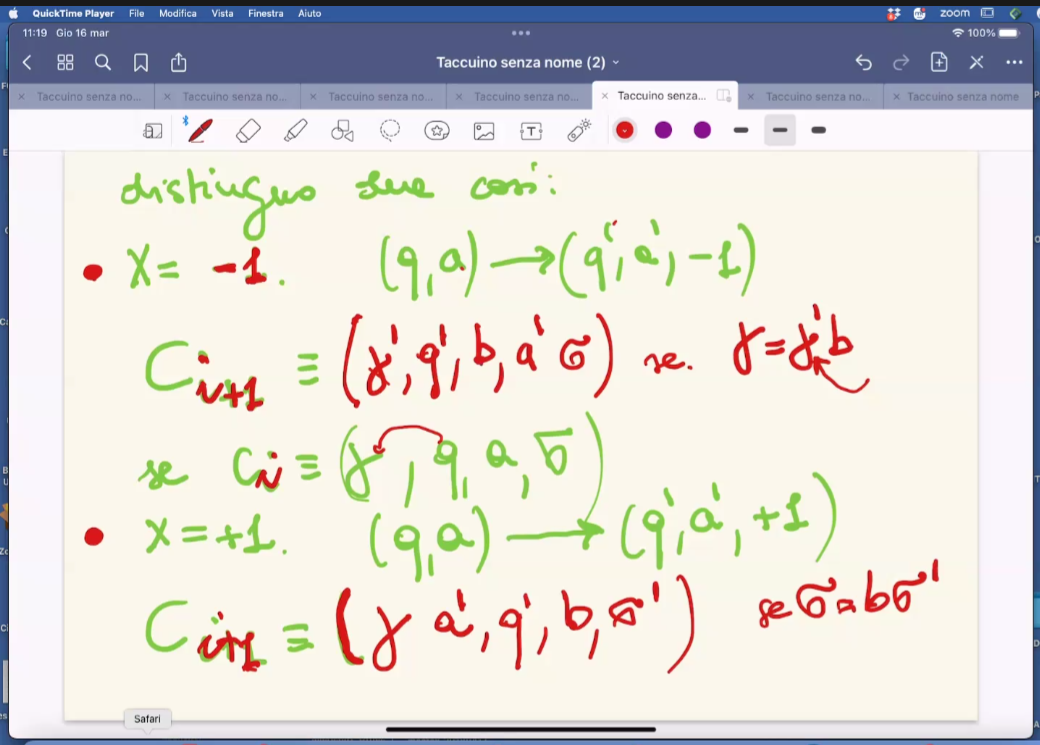 QuickTime Player File Modifica Vista Finestra Aiuto zoom
11:19 Gio 16 mar 100%
Taccuino senza nome (2)
Taccuino senza no... Taccuino senza no... Taccuino senza no... Taccuino senza no... Taccuino senza... Taccuino senza no... Taccuino senza nome
distinguo due casi:
• X = -1. (q, a) → (q', a', -1)
C i+1 ≡ (γ', q', b, a' σ) se. γ = γ'b
se C i ≡ (γ, q, a, σ)
• X = +1. (q, a) → (q', a', +1)
C i+1 ≡ (γ a', q', b, σ') se σ = bσ'
Safari